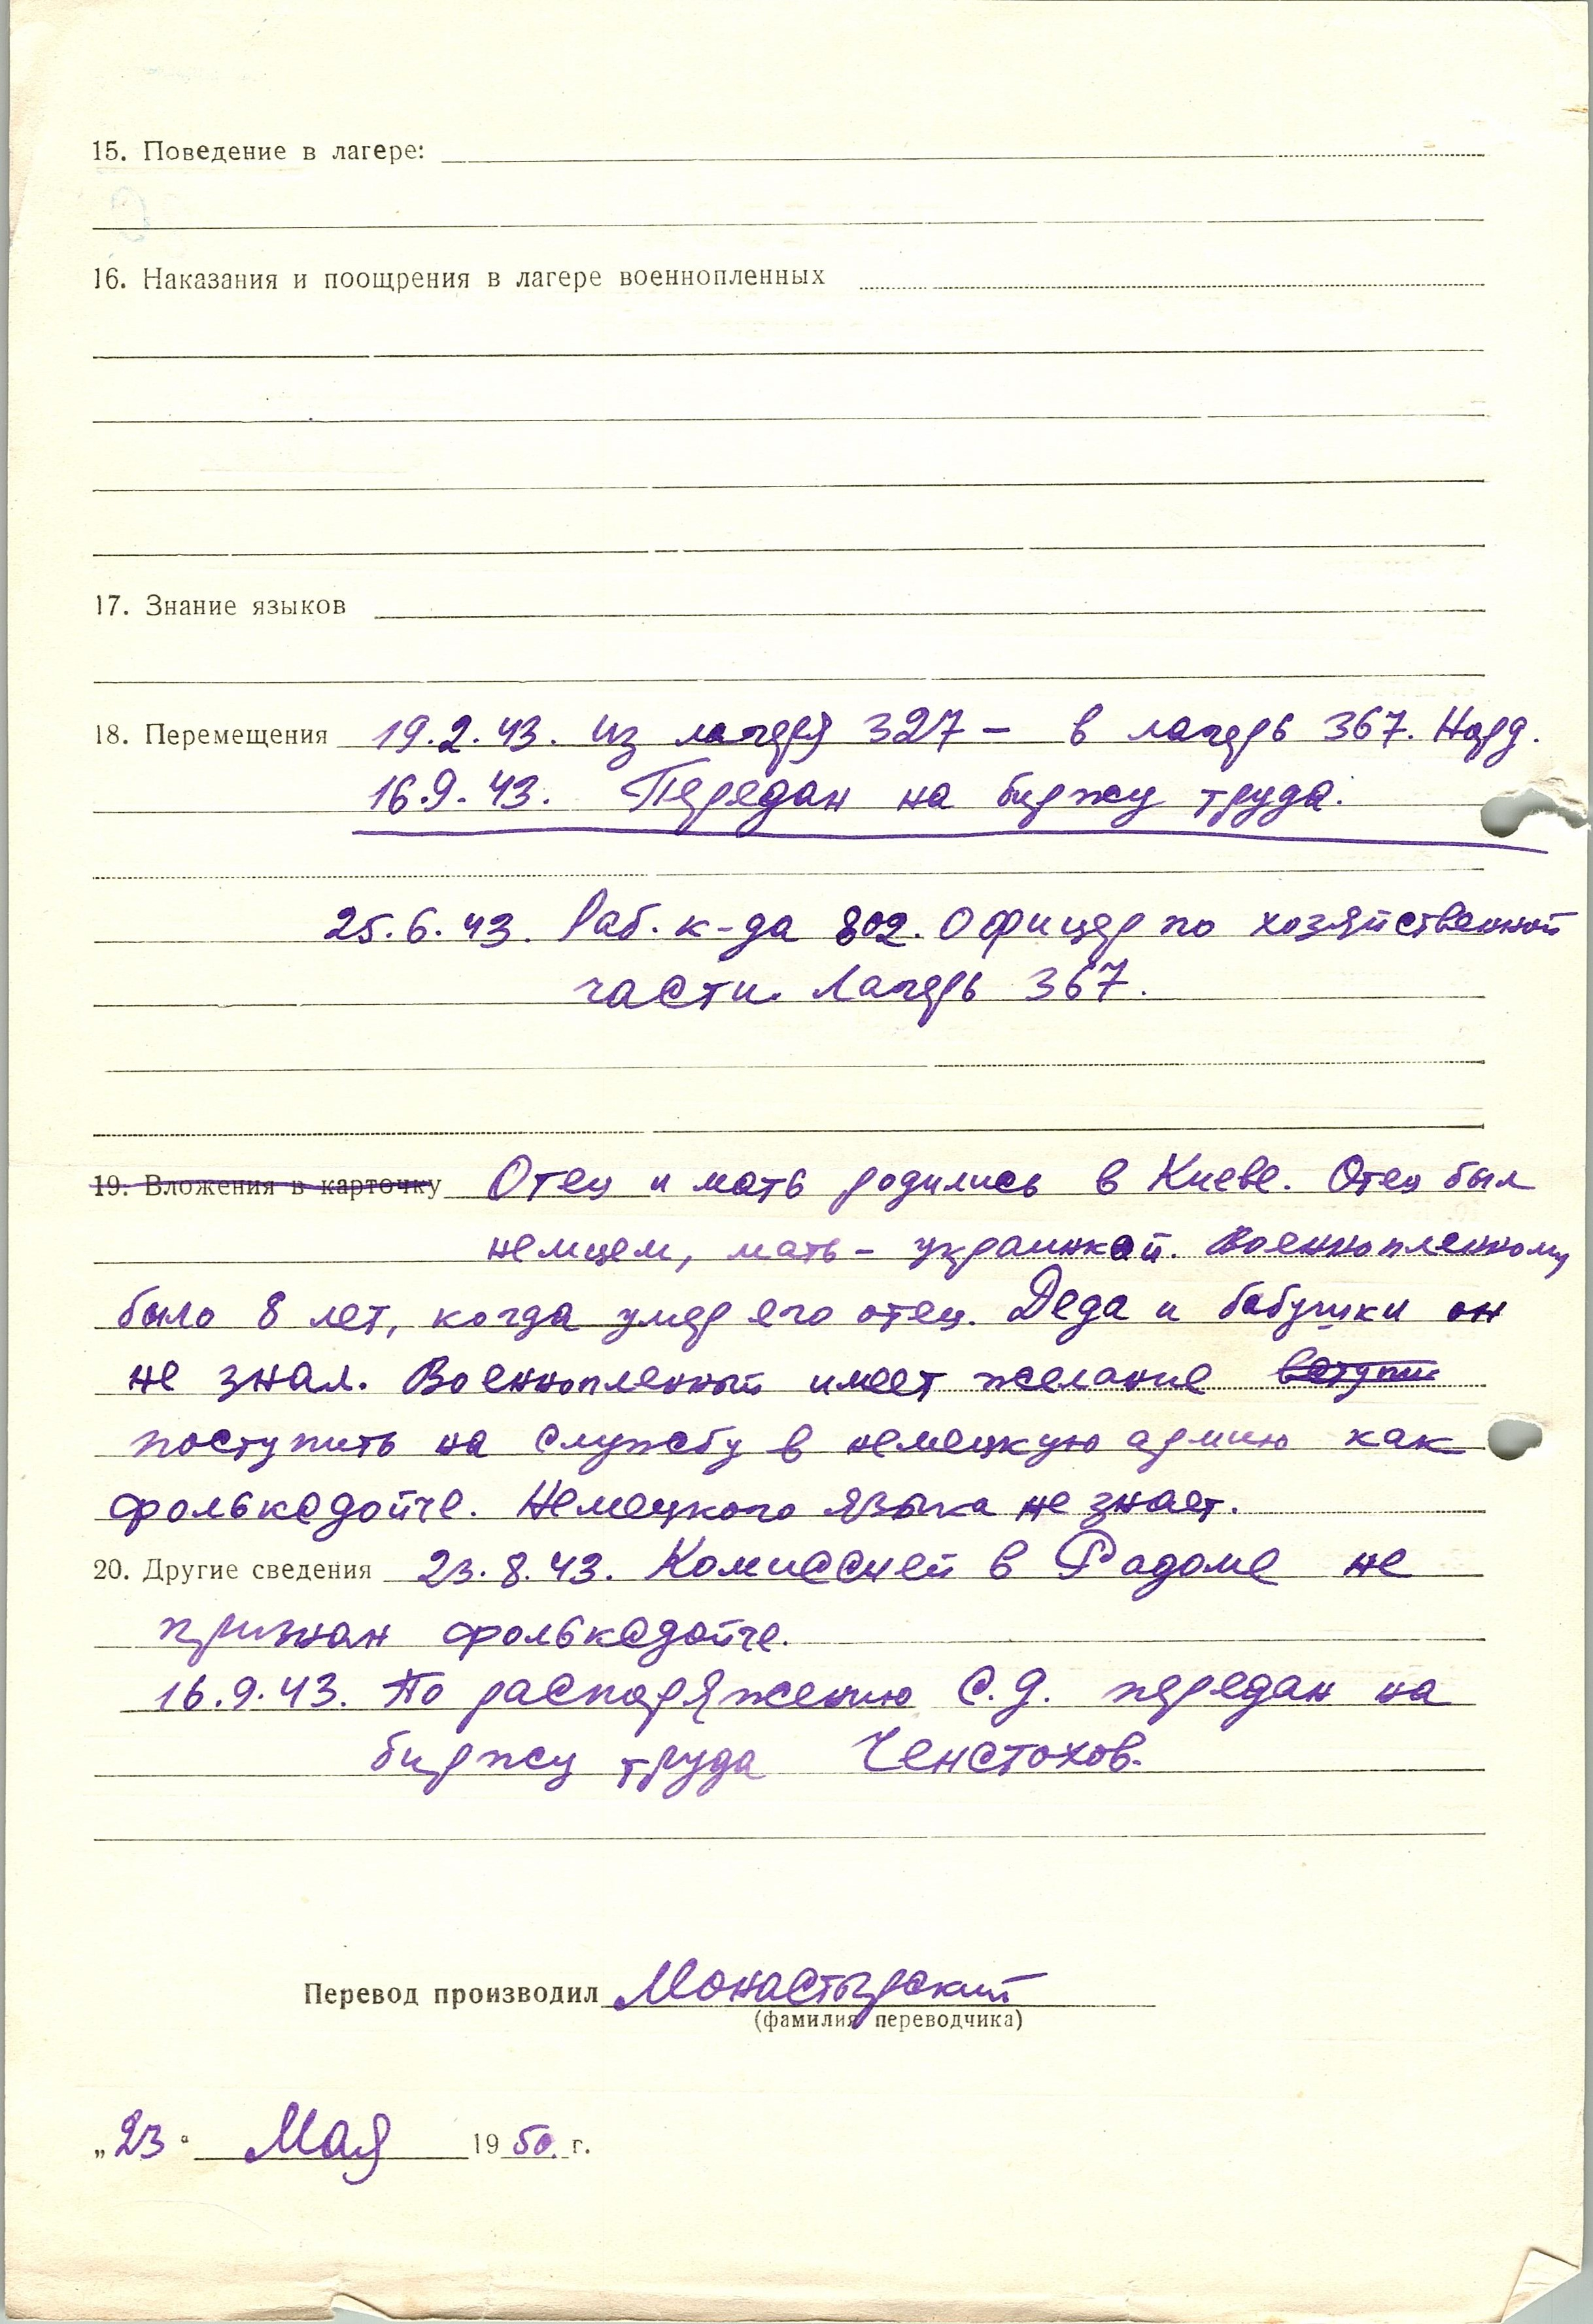 15. Поведение в лагере:
16. Наказания и поощрения в лагере военнопленных
17. Знание языков
18. Перемещения 19.2.43. из лагеря 327 – в лагерь 367. Норд.
16.9.43. Передан на биржу труда.
25.6.43. Раб. к-да 802. Офицер по хозяйственной
части. Лагерь 367.
19. Вложения в карточку Отец и мать родились в Киеве. Отец был
немцем, мать – украинкой. Военнопленному
было 8 лет, когда умер его отец. Деда и бабушки он
не знал. Военнопленный имеет желание вступи
поступить на службу в немецкую армию как
фольксдойче. Немецкого языка не знает.
20. Другие сведения 23.8.43. Комиссией в Радоме не
признан фольксдойче.
16.9.43. По распоряжению С.Д. передан на
биржу труда Ченстохов.
Перевод производил Монастырский
(фамилия переводчика)
„23“ Мая 1950. г.